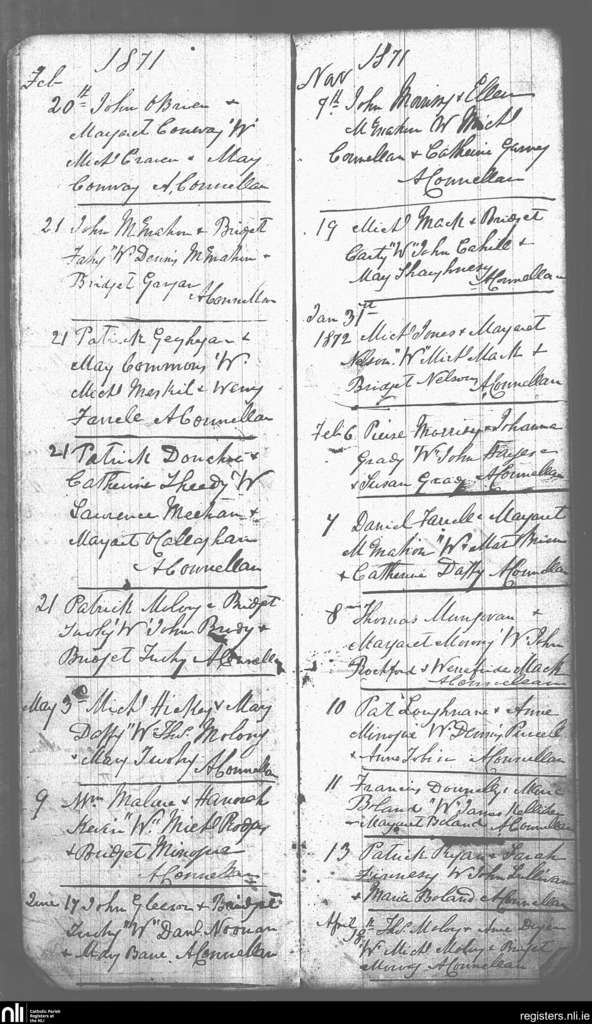 1871
Feb
20th John OBrien &
Margaret Conway "W"
Michl Craven & May
Conway A. Connellan
21 John McEnahon & Bridget
Fahy "W" Dennis McEnahon &
Bridget
AConnellan
21 Patrick Geghegan &
May Commons W.
Michl Meskil &
Farrele AConnellan
21 Patrick Donohue &
Catherine Sheedy "W"
Lawrence Meehan &
Margaret OCallaghan
AConnellan
21 Patrick Molony & Bridget
Tuohy "W" John Brudy &
Bridget Tuohy AConnellan
May 3rd Michl Hickey & May
Daffy "W" Ths. Molony
& Mary Twohy AConnellan
9 Wm Malone & Hanorah
"W" Michl
& Bridget Minogue
AConnellan
June 17 John Gleeson & Bridget
Tuohy "W" Danl Noonan
& May Bane. AConnellan
1871
Nov
9th John Morrissy & Ellen
McEnahon W Michl
Connellan & Catherine Garvey
AConnellan
19 Michl Mack & Bridget
Carty "W" John Cahill &
May Shaughnessy AConnellan
Jan 31st
1872 Michl Jones & Margaret
Nelson "W" Michl Mack &
Bridget Nelson AConnellan
Feb 6 Pierse Morrissy & Johanna
Grady "W" John Hayes
& Susan Grady AConnellan
7 Daniel Farrele & Margaret
McEnahon "W" Mart
& Catherine Daffy AConnellan
8 Thomas Mungovan &
Margaret Morony "W" John
Rochford & Mack
AConnellan
10 Pat Loughnane & Anne
Minogue W Dennis Purcell
& Anne Tobin AConnellan
11 Francis Donnelly & Maria
Boland "W" James
& Margaret Boland AConnellan
13 Patrick Ryan & Sarah
W John Sullivan
& Maria Boland AConnellan
April 28th Ths. Molony & Anne
W Michl Molony & Bridget
AConnellan
nli
Catholic Parish
Registers at
the NLI
registers.nli.ie